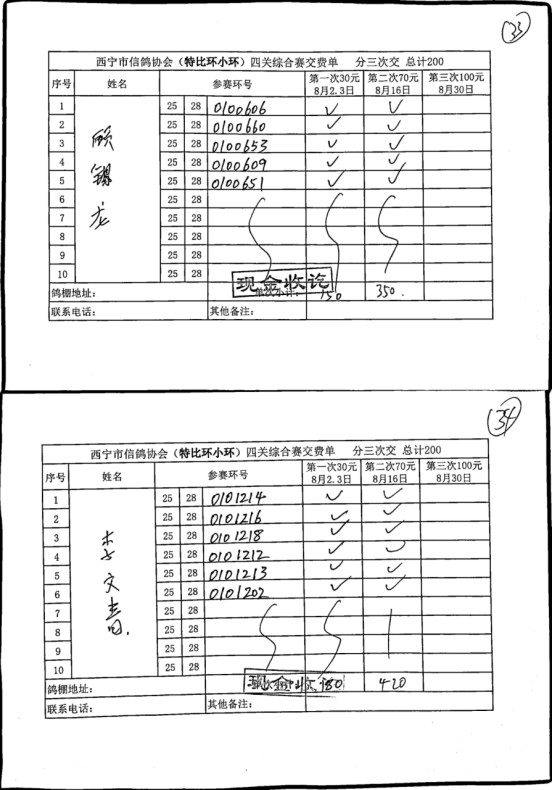 33
西宁市信鸽协会（特比环小环）四关综合赛交费单 分三次交 总计200
序号 姓名 参赛环号 第一次30元 8月2.3日 第二次70元 8月16日 第三次100元 8月30日
顾锡龙
1 25 28 0100606 ✓ ✓
2 25 28 0100660 ✓ ✓
3 25 28 0100653 ✓ ✓
4 25 28 0100609 ✓ ✓
5 25 28 0100651 ✓ ✓
6 25 28
7 25 28
8 25 28
9 25 28
10 25 28
鸽棚地址： 现金收讫 单次小计： 150 350.
联系电话： 其他备注：
34
西宁市信鸽协会（特比环小环）四关综合赛交费单 分三次交 总计200
序号 姓名 参赛环号 第一次30元 8月2.3日 第二次70元 8月16日 第三次100元 8月30日
李文
1 25 28 0101214 ✓ ✓
2 25 28 0101216 ✓ ✓
3 25 28 0101218 ✓ ✓
4 25 28 0101212 ✓ ✓
5 25 28 0101213 ✓ ✓
6 25 28 0101202 ✓ ✓
7 25 28
8 25 28
9 25 28
10 25 28
鸽棚地址： 180 420
联系电话： 其他备注：